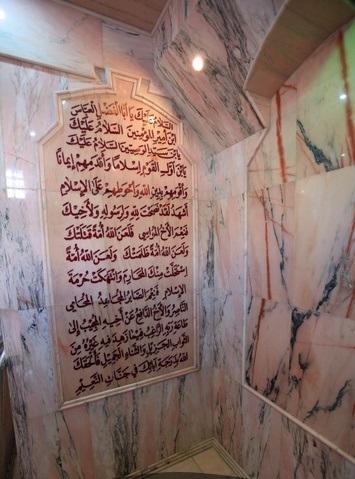 السَّلَامُ عَلَيْكَ يَا أَبَا الْفَضْلِ الْعَبَّاسَ
ابْنَ أَمِيرِ الْمُؤْمِنِينَ السَّلَامُ عَلَيْكَ
يَا بْنَ سَيِّدِ الْوَصِيِّينَ السَّلَامُ عَلَيْكَ
يَا بْنَ أَوَّلِ الْقَوْمِ إِسْلَامًا وَأَقْدَمِهِمْ إِيمَانًا
وَأَقْوَمِهِمْ بِدِينِ اللهِ وَأَحْوَطِهِمْ عَلَى الْإِسْلَامِ
أَشْهَدُ لَقَدْ نَصَحْتَ لِلهِ وَلِرَسُولِهِ وَلِأَخِيكَ
فَنِعْمَ الْأَخُ الْمُوَاسِي فَلَعَنَ اللهُ أُمَّةً قَتَلَتْكَ
وَلَعَنَ اللهُ أُمَّةً ظَلَمَتْكَ وَلَعَنَ اللهُ أُمَّةً
اسْتَحَلَّتْ مِنْكَ الْمَحَارِمَ وَانْتَهَكَتْ حُرْمَةَ
الْإِسْلَامِ فَنِعْمَ الصَّابِرُ الْمُجَاهِدُ الْمُحَامِي
النَّاصِرُ وَالْأَخُ الدَّافِعُ عَنْ أَخِيهِ الْمُجِيبُ إِلَى
طَاعَةِ رَبِّهِ الرَّاغِبُ فِيمَا زَهِدَ فِيهِ غَيْرُهُ مِنَ
الثَّوَابِ الْجَزِيلِ وَالثَّنَاءِ الْجَمِيلِ فَأَلْحَقَكَ
اللهُ بِدَرَجَةِ آبَائِكَ فِي جَنَّاتِ النَّعِيمِ